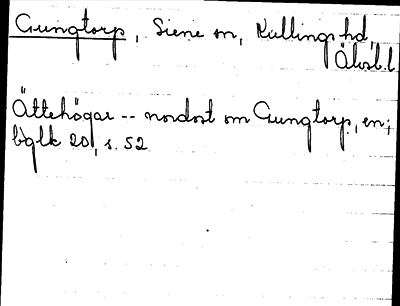 Gungtorp, Siene sn, Kullings hd,
Älvsb. l
Ättehögar -- nordost om Gungtorp, en;
bglk 20, s. 52